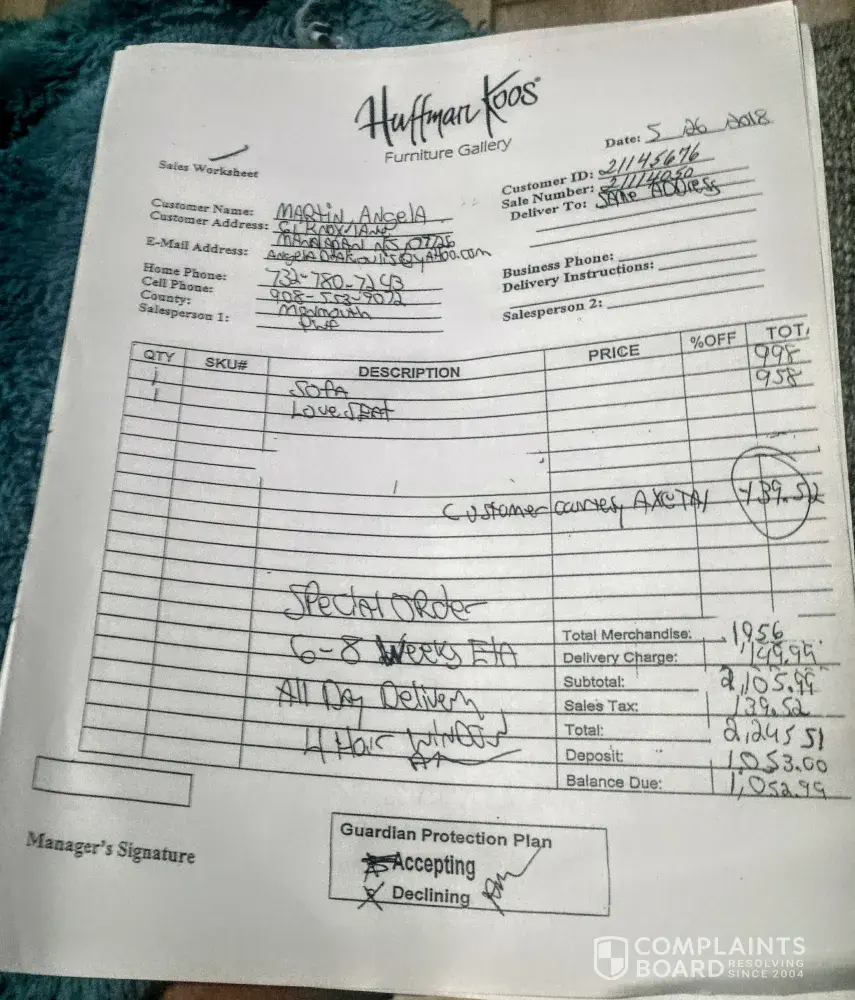 Huffman Koos
Furniture Gallery
Sales Worksheet
Date: 5 26 2018
Customer ID: 21145676
Sale Number: 21114050
Deliver To: SAme ADDress
Customer Name: MARTIN, AngelA
Customer Address:
MANALAPAN NJ 07726
E-Mail Address:
Home Phone: 732-780-7243
Cell Phone: 908-553-9072
County: Monmouth
Salesperson 1:
Business Phone:
Delivery Instructions:
Salesperson 2:
QTY SKU# DESCRIPTION PRICE %OFF TOT.
1 SOFA 998
1 Love SEAT 958
Customer 139.52
SPecial ORder
6-8 Weeks ETA
All Day Delivery
4 Hour WINDOW
Total Merchandise: 1956
Delivery Charge: 149.99
Subtotal: 2,105.99
Sales Tax: 139.52
Total: 2,245 51
Deposit: 1,053.00
Balance Due: 1,052.99
Manager's Signature
Guardian Protection Plan
Accepting
X Declining
COMPLAINTS
BOARD RESOLVING
SINCE 2004